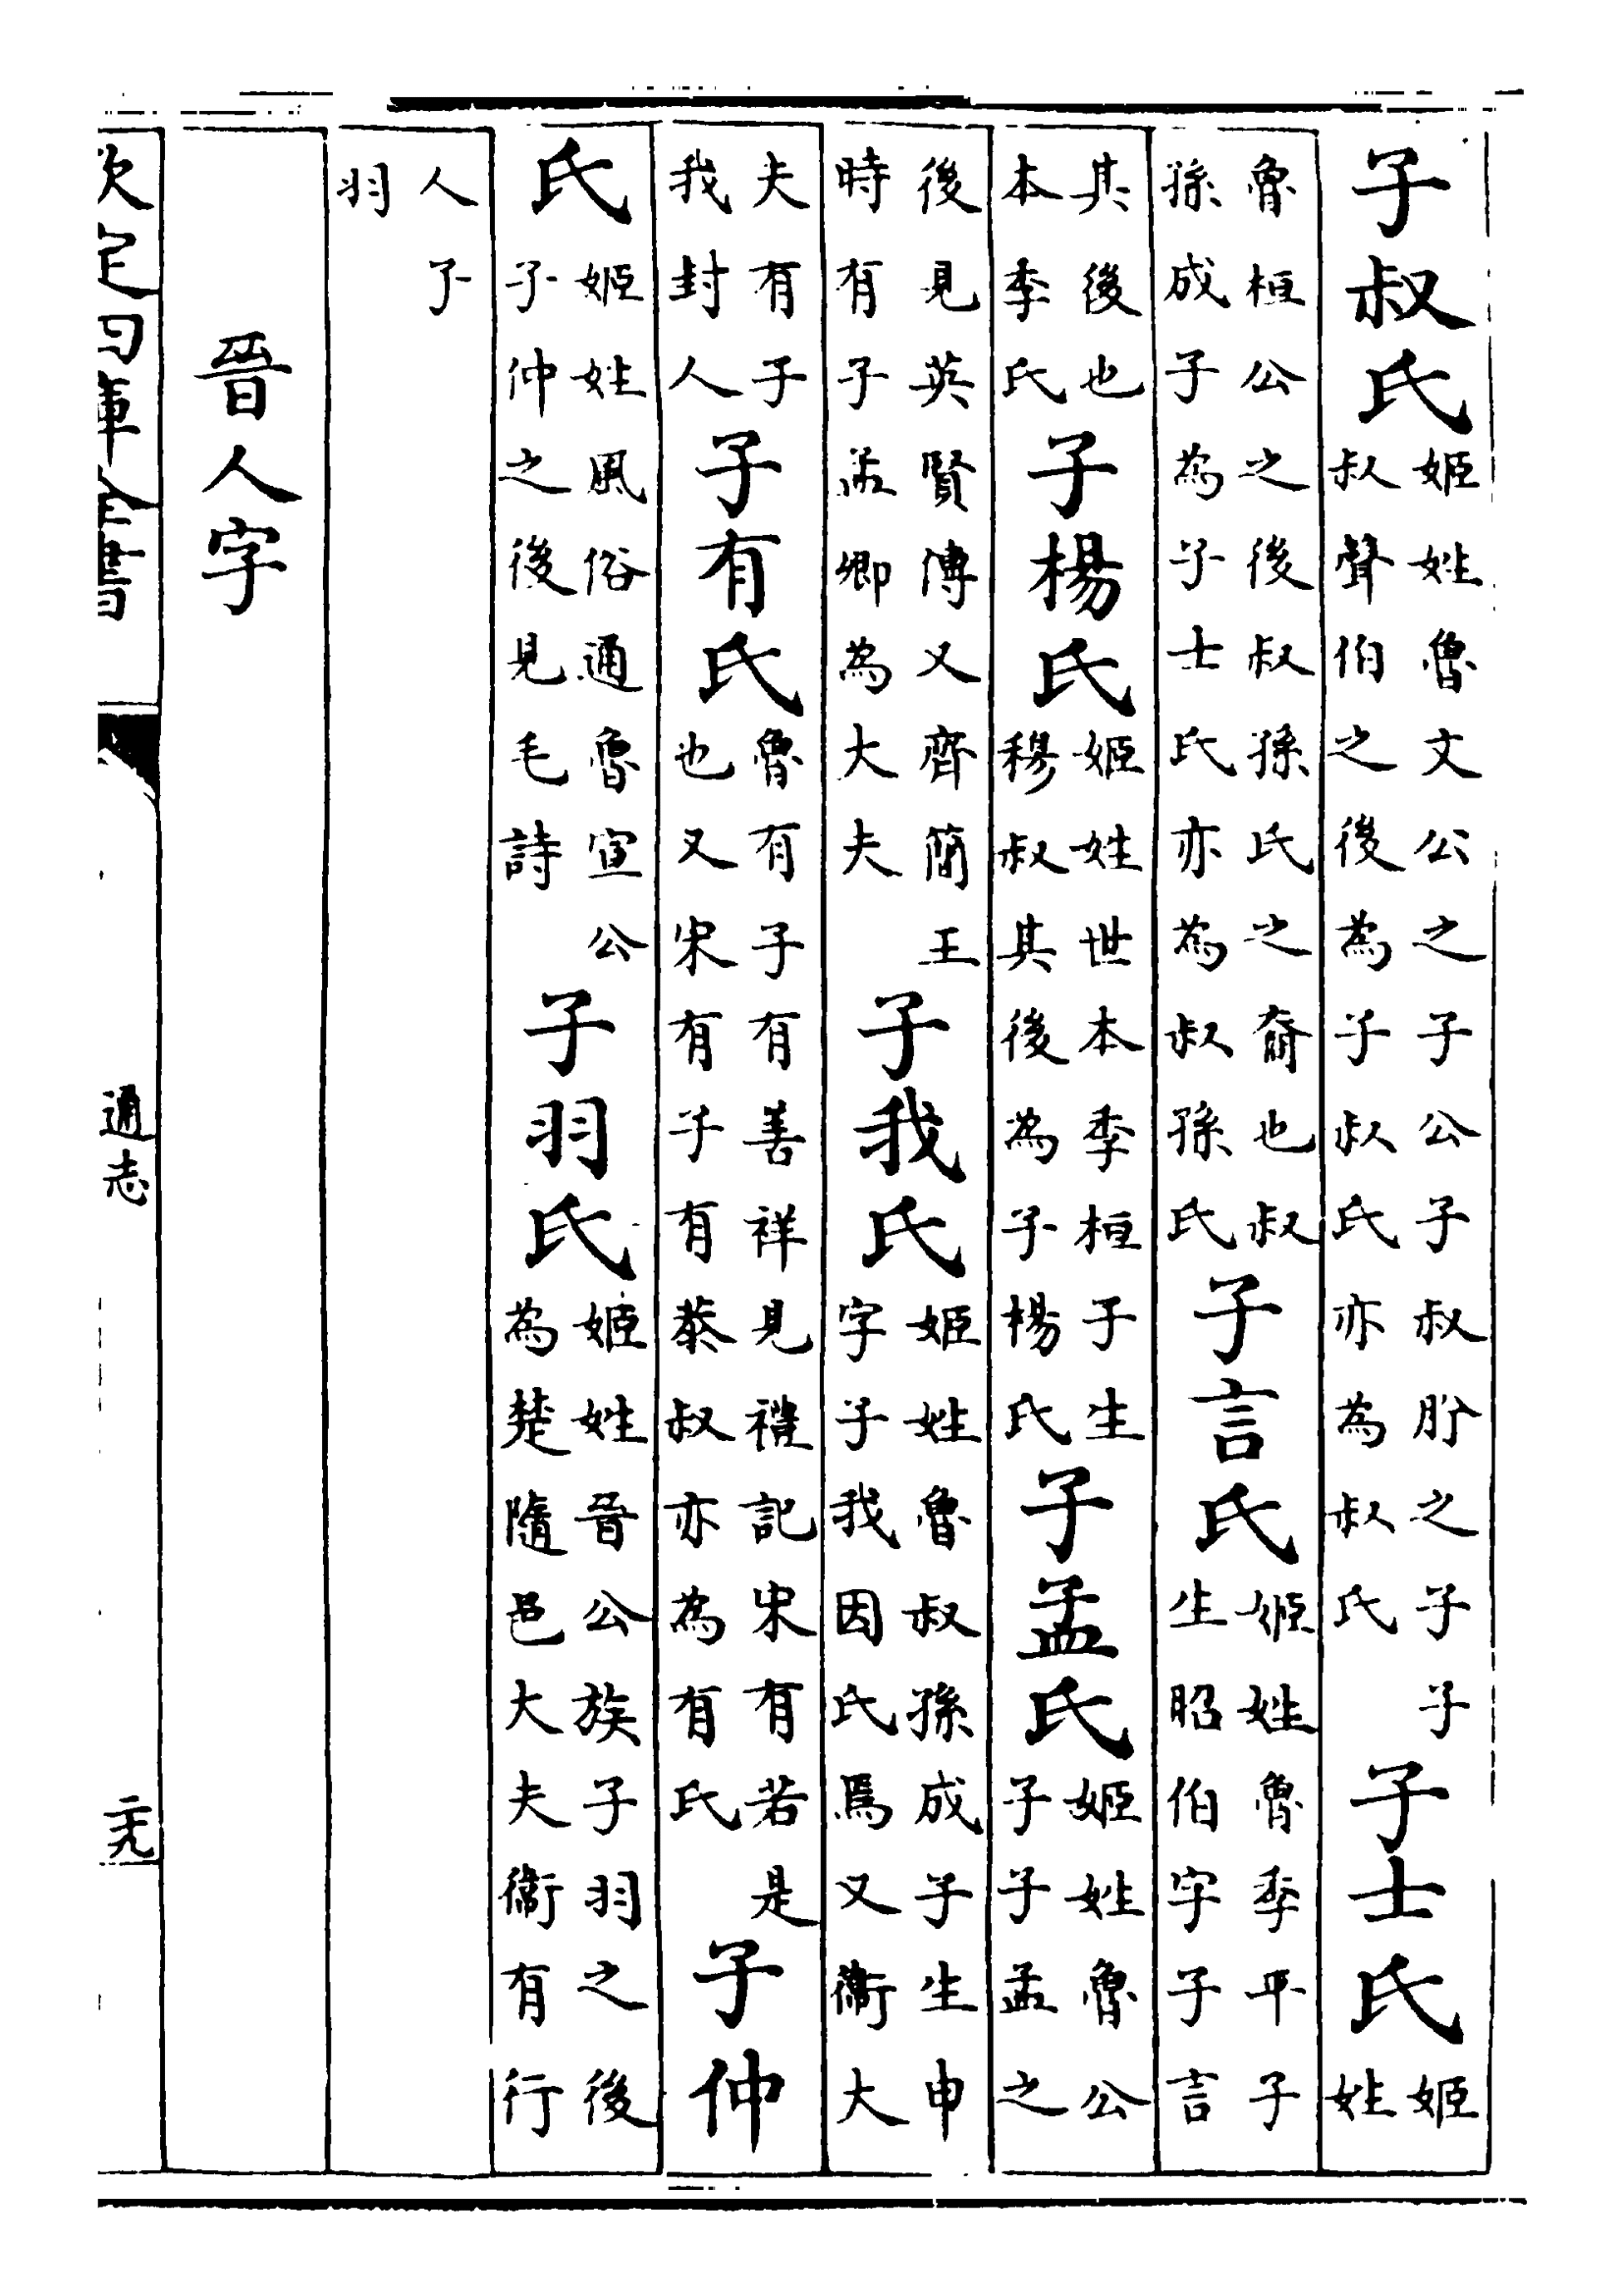 子叔氏姬姓魯文公之子公子叔肹之子子叔聲伯之後為子叔氏亦為叔氏子士氏姬姓
魯桓公之後叔孫氏之裔也叔孫成子為子士氏亦為叔孫氏子言氏姬姓魯季平子生昭伯字子言
其後也本季氏子楊氏姬姓世本季桓子生穆叔其後為子楊氏子孟氏姬姓魯公子子孟之
後見英賢傳又齊簡王時有子孟卿為大夫子我氏姬姓魯叔孫成子生申字子我因氏焉又衞大
夫有子我封人子有氏魯有子有善祥見禮記宋有若是也又宋有子有蔡叔亦為有氏子仲
氏姬姓風俗通魯宣公子仲之後見毛詩子羽氏姬姓晉公族子羽之後為楚隨邑大夫衞有行
人子羽
晉人字
欽定四庫全書
通志